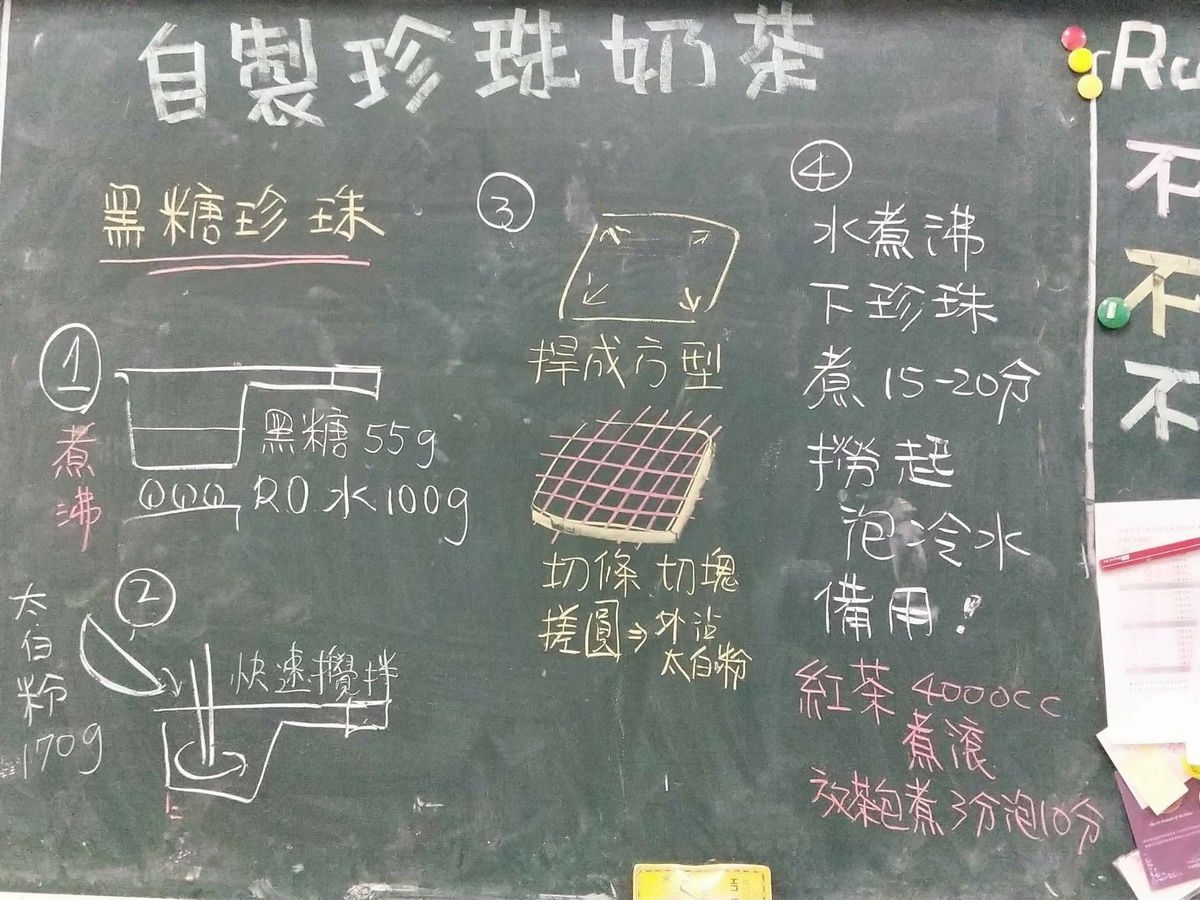 自製珍珠奶茶
黑糖珍珠
①
煮沸
黑糖 55g
RO 水 100g
②
太白粉 170g
快速攪拌
③
捍成方型
切條 切塊
搓圓 ⇒ 外沾太白粉
④
水煮沸
下珍珠
煮 15-20分
撈起
泡冷水
備用!
紅茶 4000cc
煮滾
放茶包煮3分泡10分
Ru
不
不
不